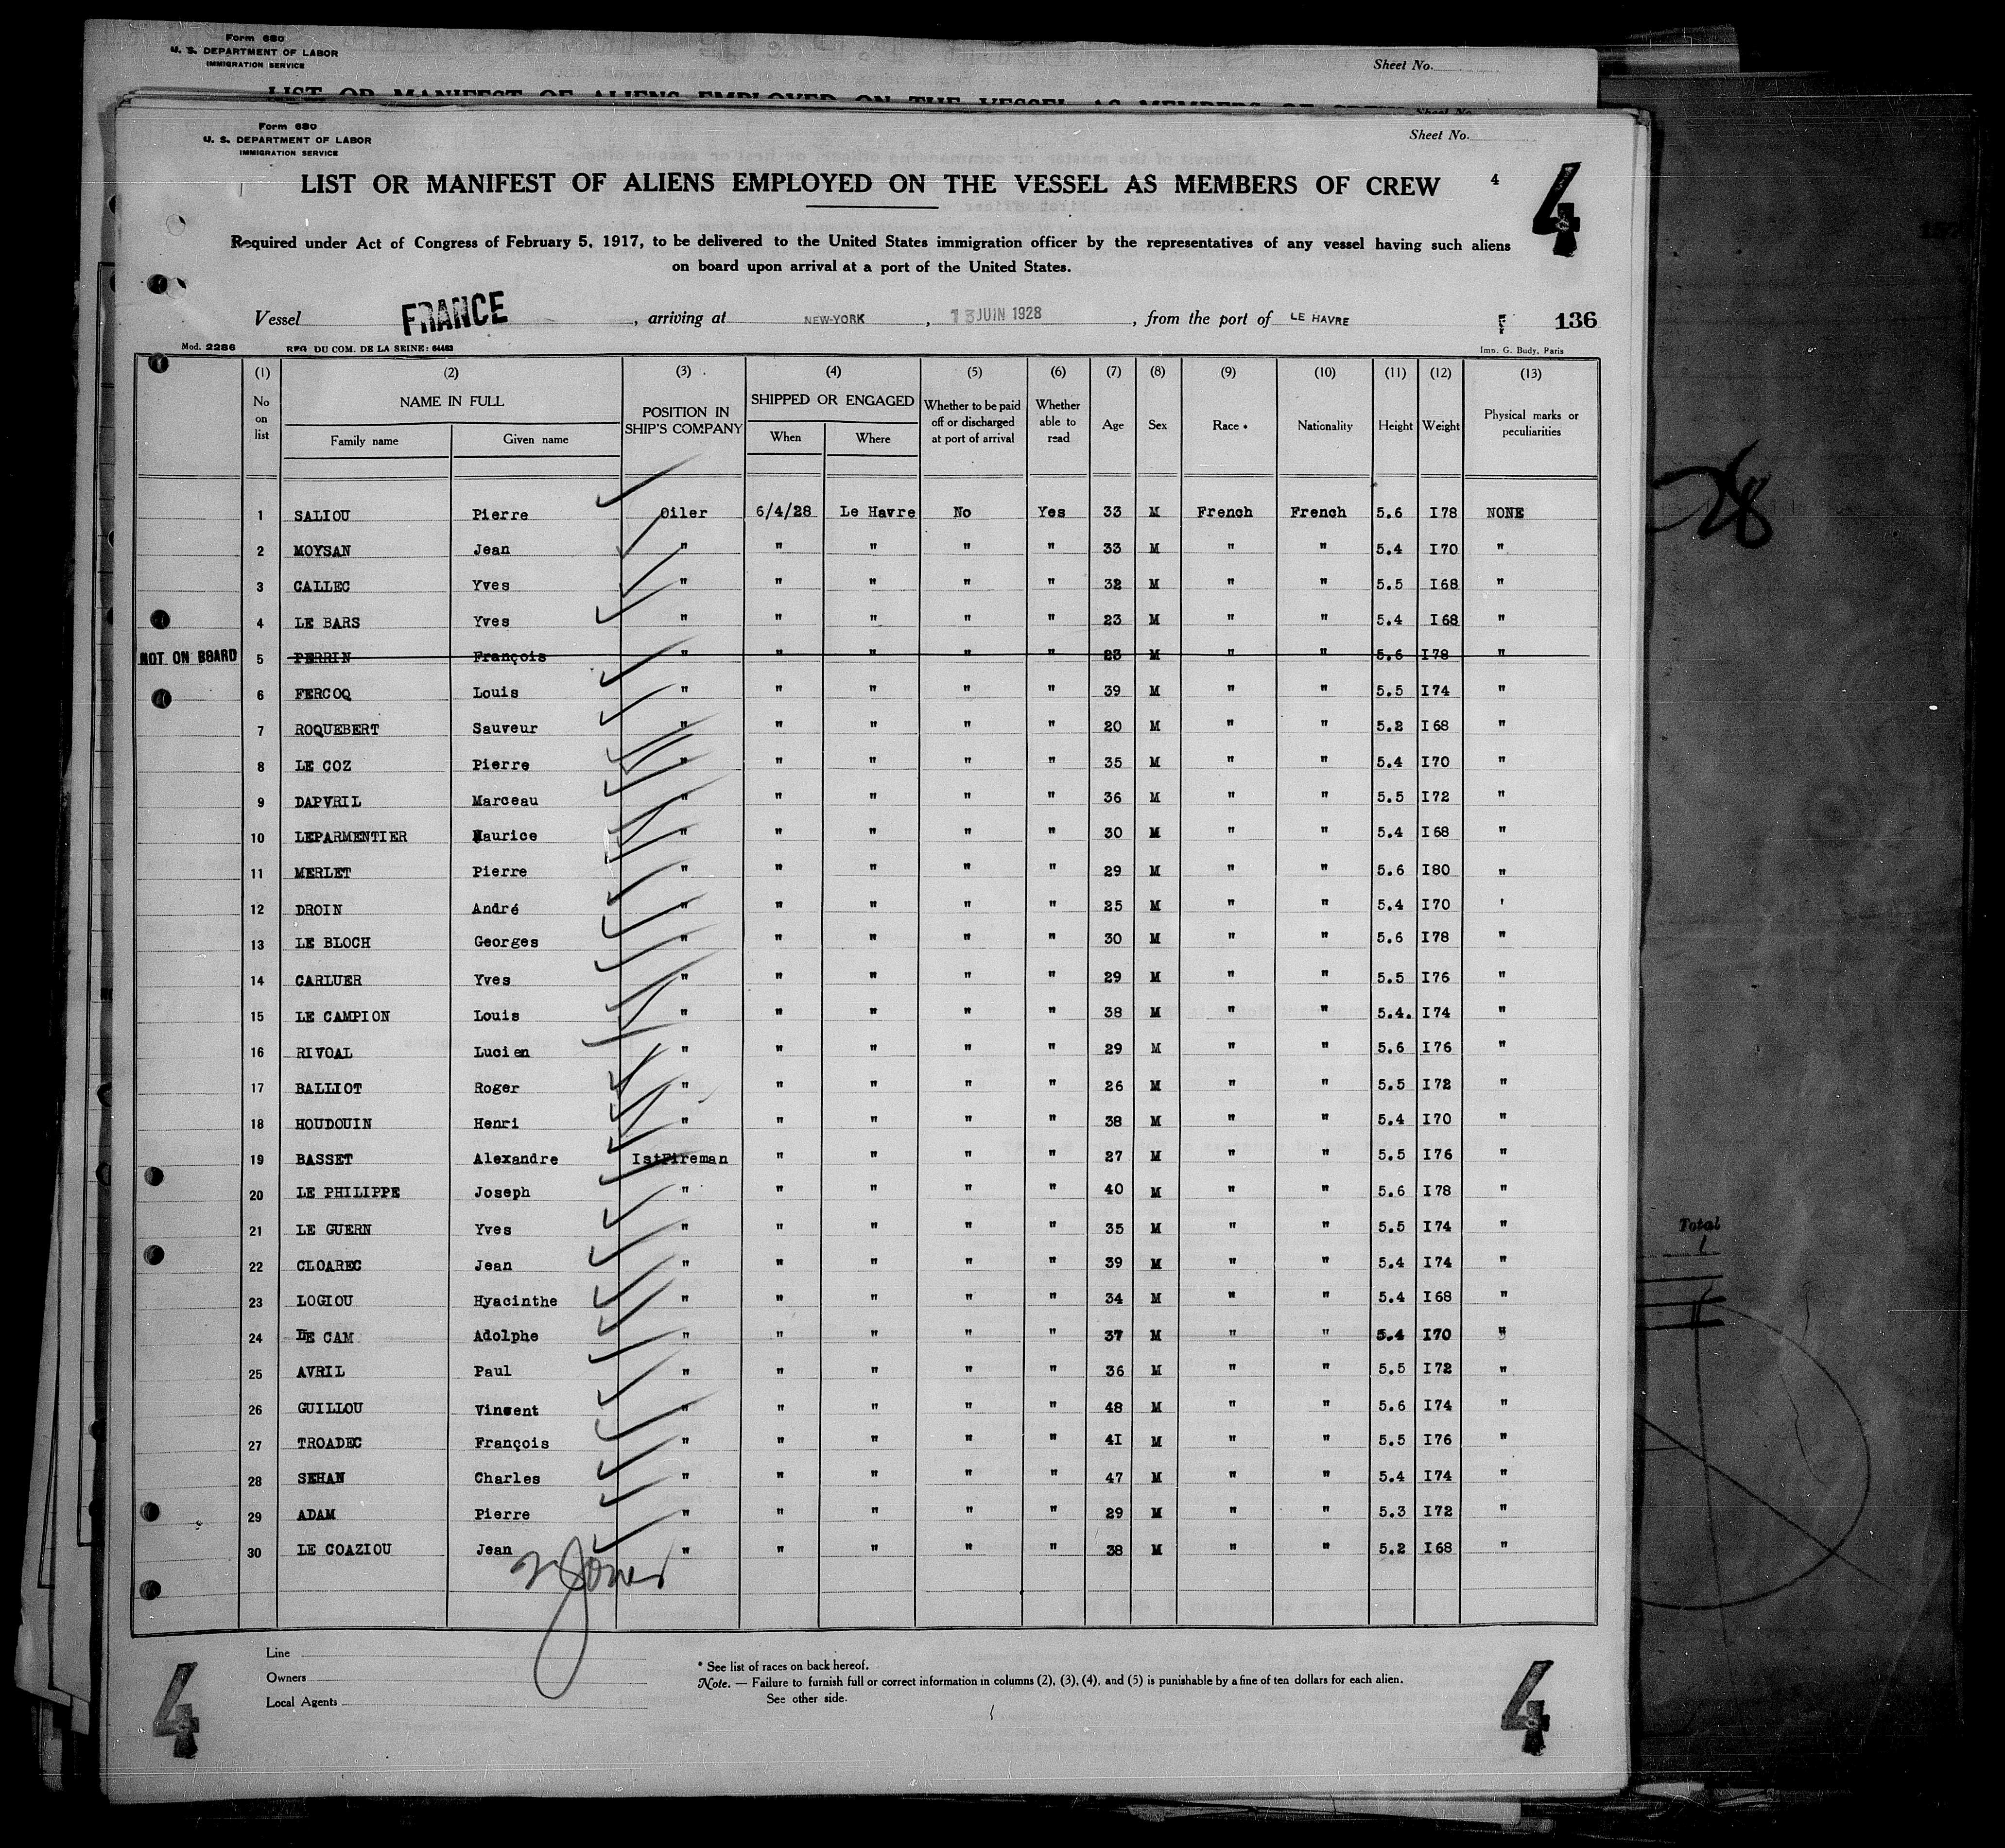 Form 680
U. S. DEPARTMENT OF LABOR
IMMIGRATION SERVICE
Sheet No.
LIST OR MANIFEST OF ALIENS EMPLOYED ON THE VESSEL AS MEMBERS OF CREW
Sheet No.
Form 680
U. S. DEPARTMENT OF LABOR
IMMIGRATION SERVICE
Sheet No.
LIST OR MANIFEST OF ALIENS EMPLOYED ON THE VESSEL AS MEMBERS OF CREW 4 4
Required under Act of Congress of February 5, 1917, to be delivered to the United States immigration officer by the representatives of any vessel having such aliens
on board upon arrival at a port of the United States.
Vessel FRANCE , arriving at NEW-YORK , 13 JUIN 1928 , from the port of LE HAVRE F 136
Mod. 2286 REG. DU COM. DE LA SEINE: 64483 Imp. G. Budy, Paris
(1) (2) (3) (4) (5) (6) (7) (8) (9) (10) (11) (12) (13)
No on list NAME IN FULL Family name Given name POSITION IN SHIP'S COMPANY SHIPPED OR ENGAGED When Where Whether to be paid off or discharged at port of arrival Whether able to read Age Sex Race * Nationality Height Weight Physical marks or peculiarities
1 SALIOU Pierre Oiler 6/4/28 Le Havre No Yes 33 M French French 5.6 I78 NONE
2 MOYSAN Jean " " " " " 33 M " " 5.4 I70 "
3 CALLEC Yves " " " " " 32 M " " 5.5 I68 "
4 LE BARS Yves " " " " " 23 M " " 5.4 I68 "
NOT ON BOARD 5 PERRIN François " " " " " 23 M " " 5.6 I78 "
6 FERCOQ Louis " " " " " 39 M " " 5.5 I74 "
7 ROQUEBERT Sauveur " " " " " 20 M " " 5.2 I68 "
8 LE COZ Pierre " " " " " 35 M " " 5.4 I70 "
9 DAPVRIL Marceau " " " " " 36 M " " 5.5 I72 "
10 LEPARMENTIER Maurice " " " " " 30 M " " 5.4 I68 "
11 MERLET Pierre " " " " " 29 M " " 5.6 I80 "
12 DROIN André " " " " " 25 M " " 5.4 I70 '
13 LE BLOCH Georges " " " " " 30 M " " 5.6 I78 "
14 CARLUER Yves " " " " " 29 M " " 5.5 I76 "
15 LE CAMPION Louis " " " " " 38 M " " 5.4. I74 "
16 RIVOAL Lucien " " " " " 29 M " " 5.6 I76 "
17 BALLIOT Roger " " " " " 26 M " " 5.5 I72 "
18 HOUDOUIN Henri " " " " " 38 M " " 5.4 I70 "
19 BASSET Alexandre IstFireman " " " " 27 M " " 5.5 I76 "
20 LE PHILIPPE Joseph " " " " " 40 M " " 5.6 I78 "
21 LE GUERN Yves " " " " " 35 M " " 5.5 I74 "
22 CLOAREC Jean " " " " " 39 M " " 5.4 I74 "
23 LOGIOU Hyacinthe " " " " " 34 M " " 5.4 I68 "
24 LE CAM Adolphe " " " " " 37 M " " 5.4 I70 "
25 AVRIL Paul " " " " " 36 M " " 5.5 I72 "
26 GUILLOU Vincent " " " " " 48 M " " 5.6 I74 "
27 TROADEC François " " " " " 4I M " " 5.5 I76 "
28 SEHAN Charles " " " " " 47 M " " 5.4 I74 "
29 ADAM Pierre " " " " " 29 M " " 5.3 I72 "
30 LE COAZIOU Jean " " " " " 38 M " " 5.2 I68 "
Jones
Line
Owners
Local Agents
* See list of races on back hereof.
Note. — Failure to furnish full or correct information in columns (2), (3), (4), and (5) is punishable by a fine of ten dollars for each alien.
See other side.
4 4
Total